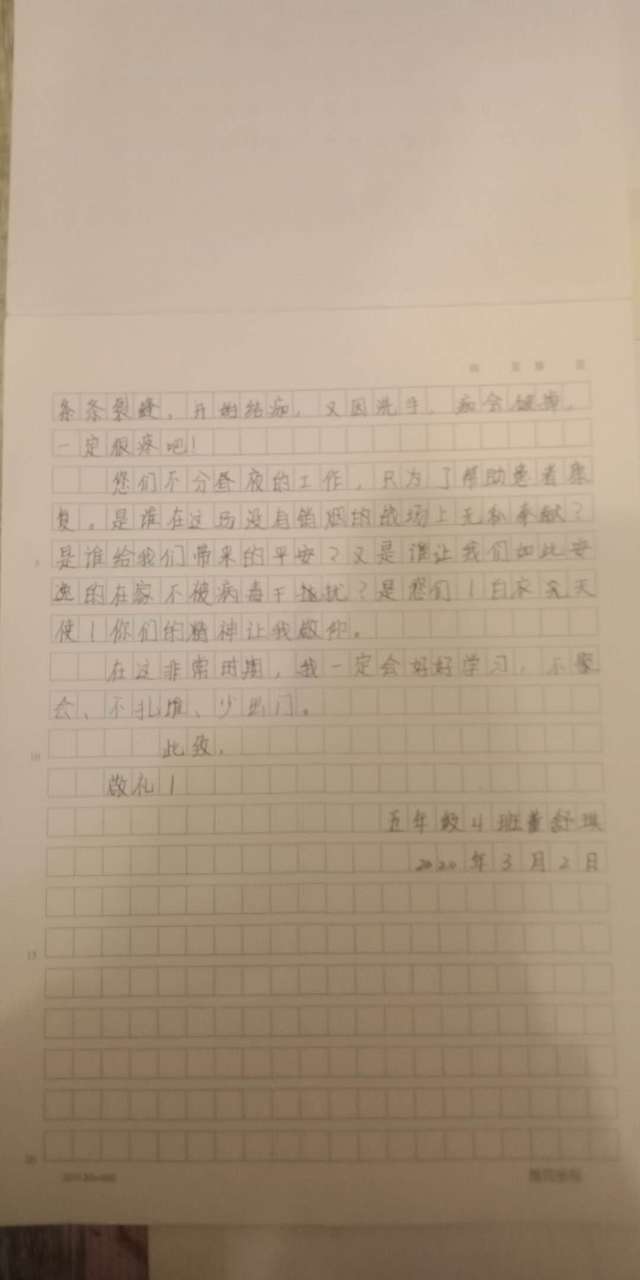 条条裂缝，开始结痂，又因洗手，痂会
一定很疼吧！
您们不分昼夜的工作，只为了帮助患者康
复。是谁在这场没有硝烟的战场上无私奉献？
5
是谁给我们带来的平安？又是谁让我们如此安
逸的在家不被病毒干扰？是您们！白衣天
使！你们的精神让我敬仰。
在这非常时期，我一定会好好学习，不聚
会、不扎堆、少出门。
10
此致，
敬礼！
五年级4班董舒琪
2020年3月2日
15
20